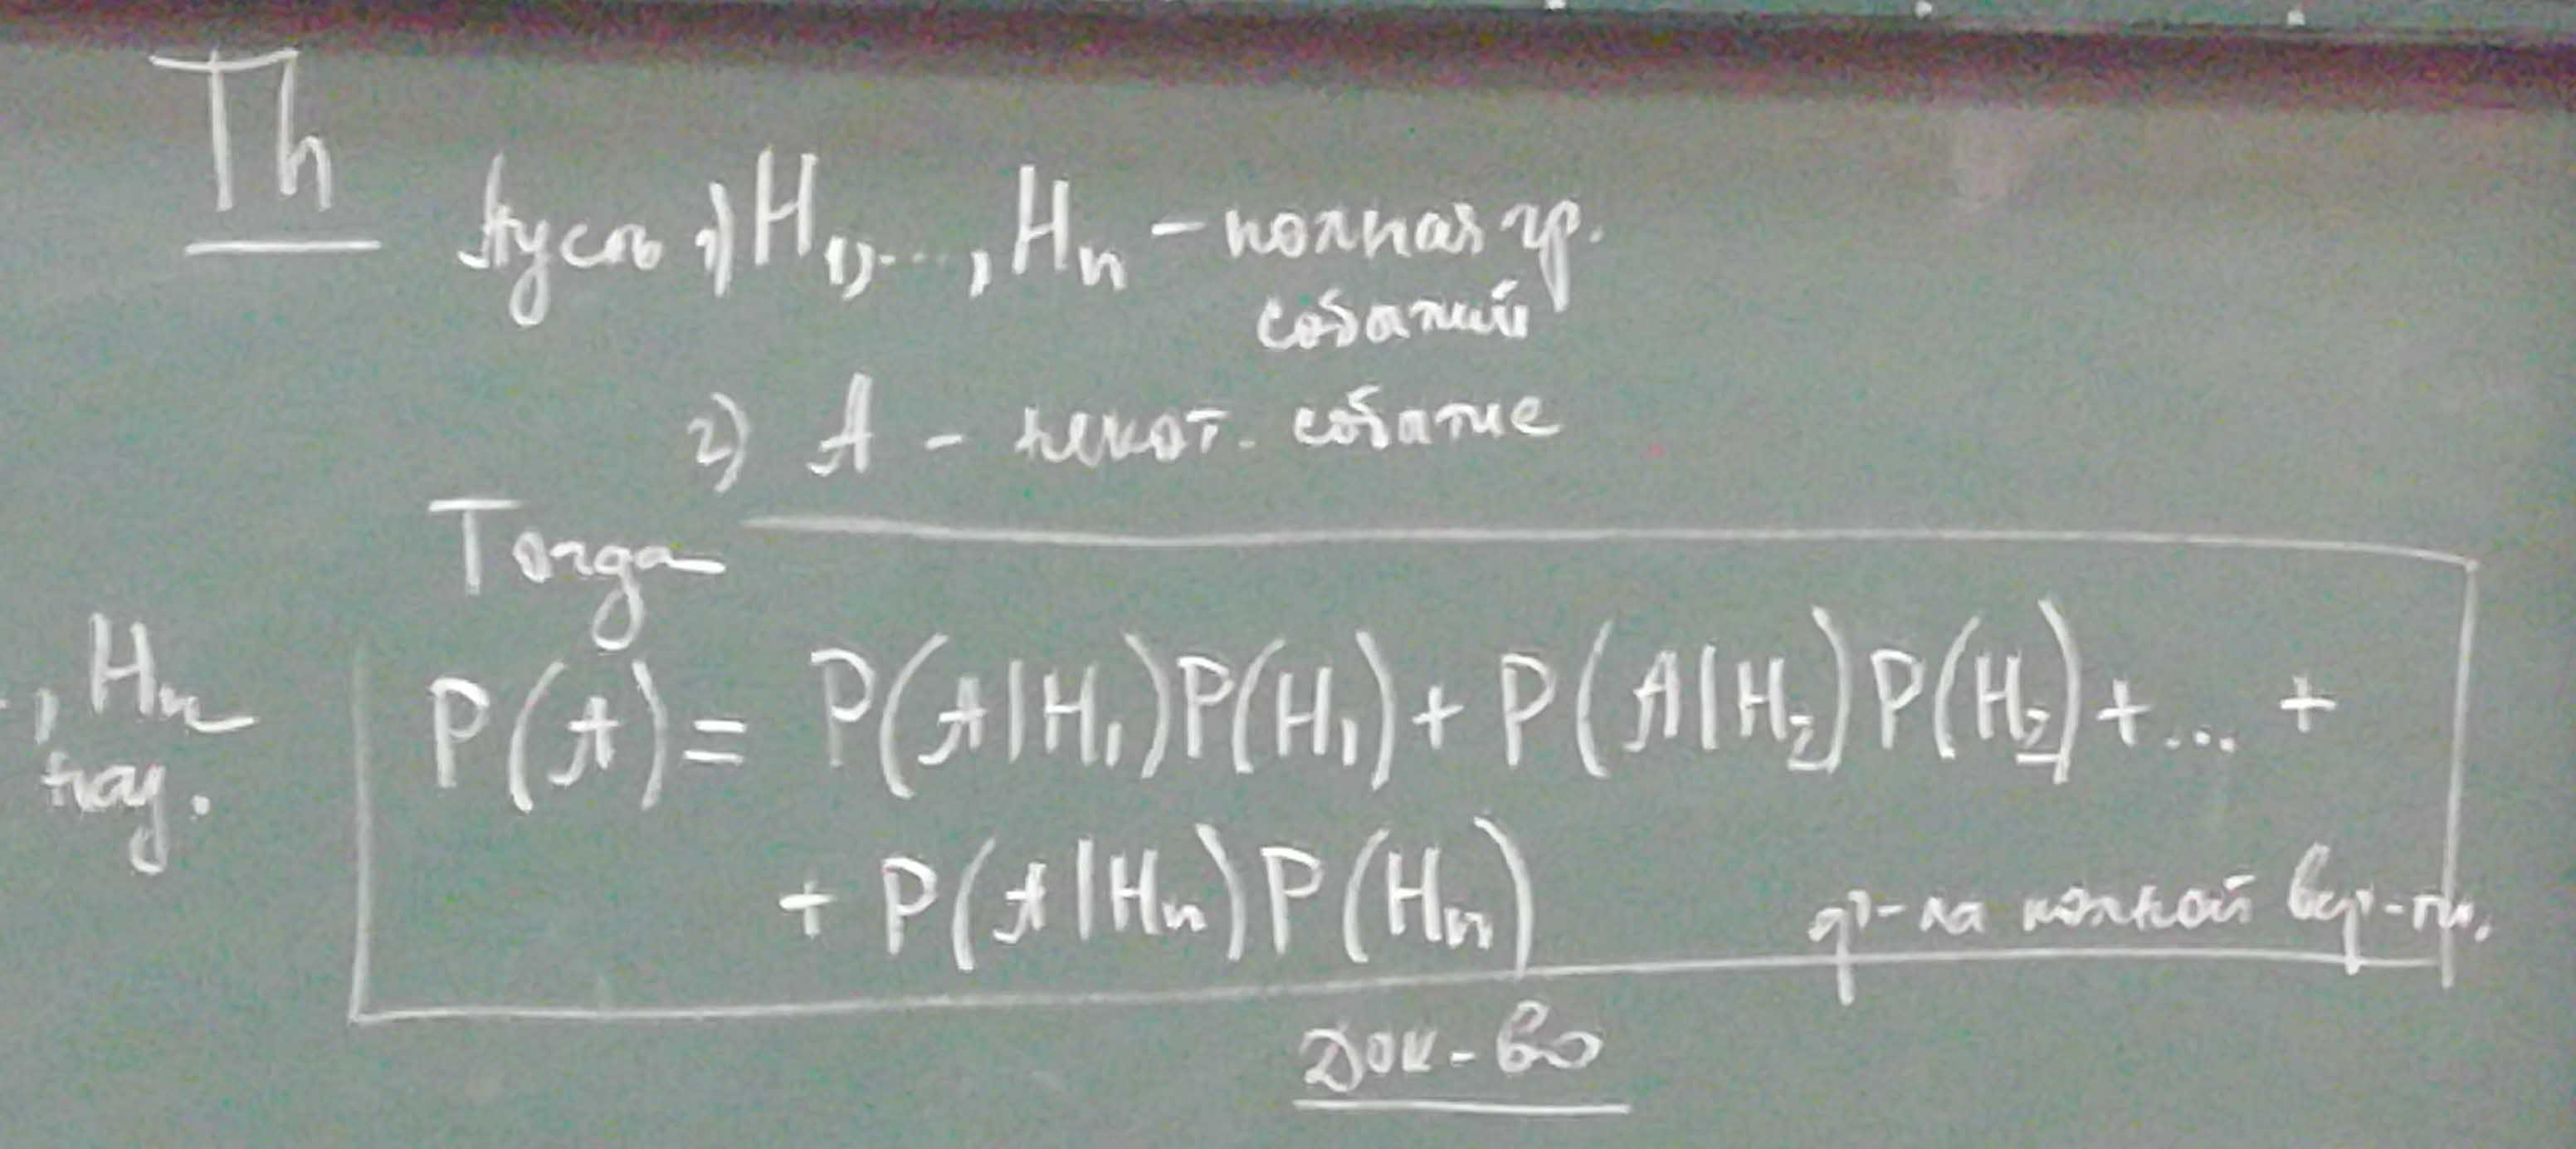 Th
Пусть 1) H₁, ..., Hₙ - полная гр.
событий
2) A - некот. событие
Тогда
P(A) = P(A|H₁)P(H₁) + P(A|H₂)P(H₂) + ... +
+ P(A|Hₙ)P(Hₙ)
ф-ла полной вер-ти.
, Hₙ
Док-во